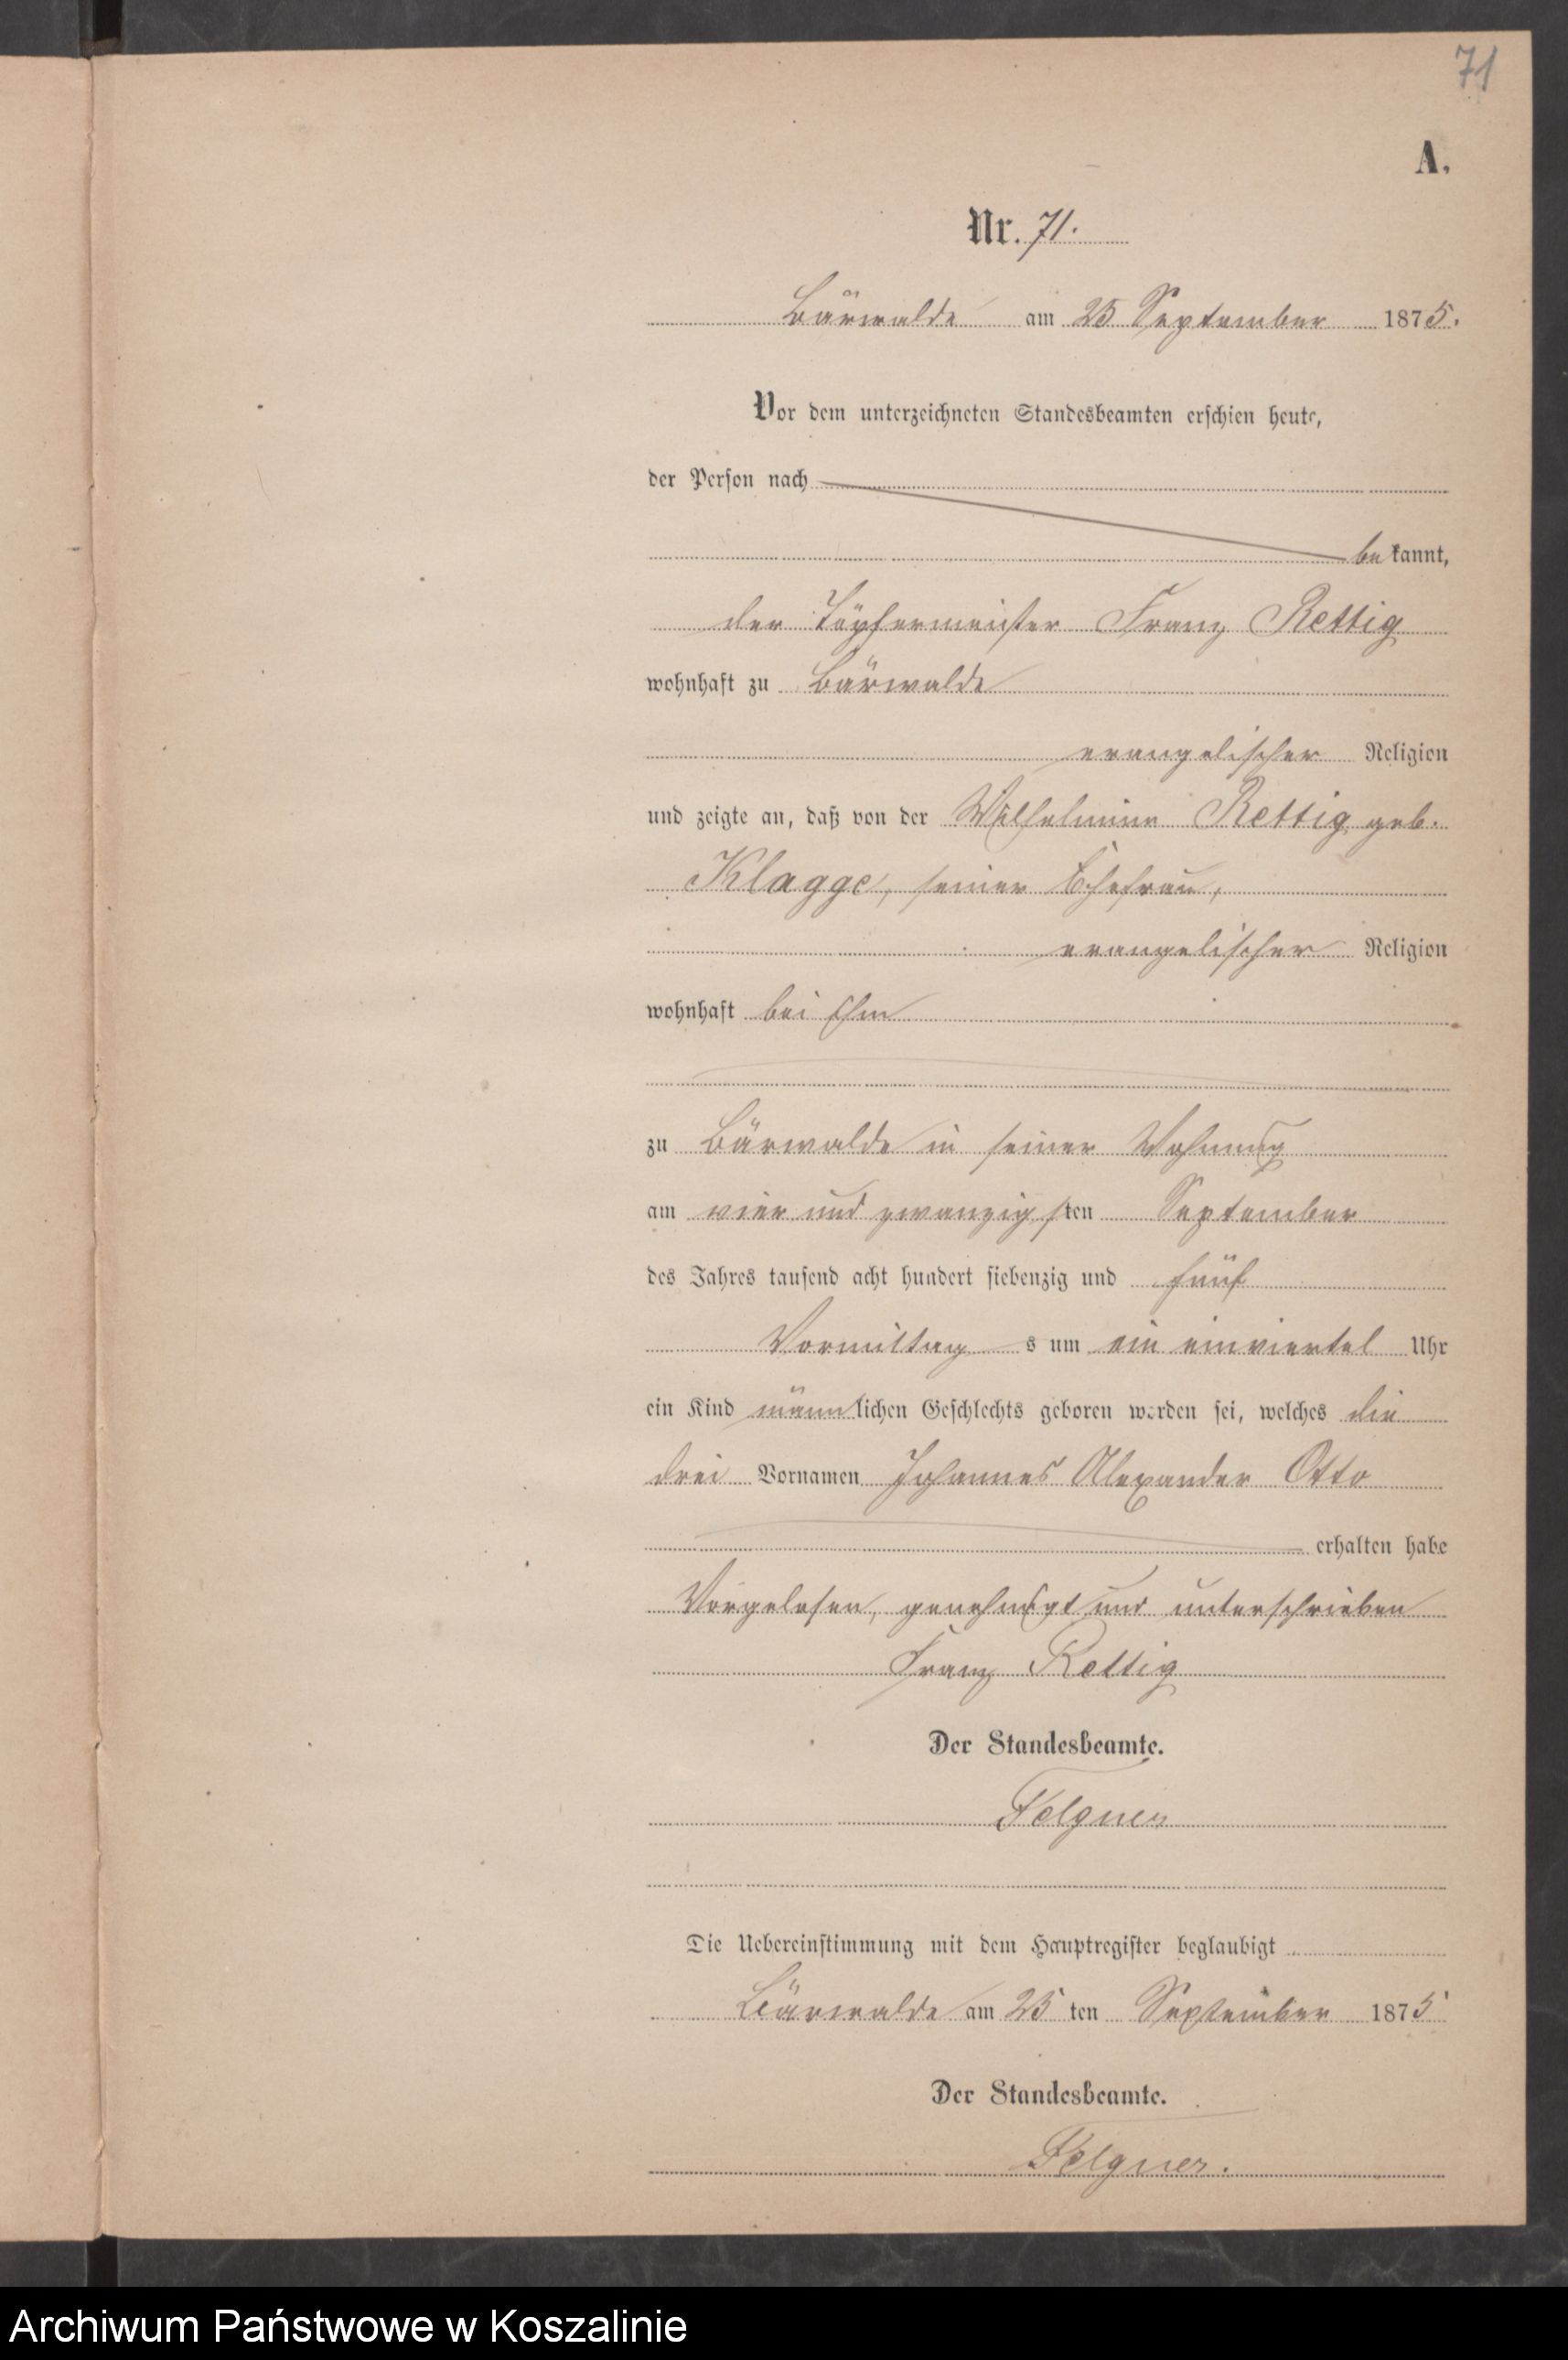 71
A.
Nr. 71.
Bärwalde am 25 September 1875.
Vor dem unterzeichneten Standesbeamten erschien heute,
der Person nach
bekannt,
der Töpfermeister Franz Rettig
wohnhaft zu Bärwalde
evangelischer Religion
und zeigte an, daß von der Wilhelmine Rettig geb.
Klagge, seiner Ehefrau,
evangelischer Religion
wohnhaft bei ihm
zu Bärwalde in seiner Wohnung
am vier und zwanzigsten September
des Jahres tausend acht hundert siebenzig und fünf
Vormittags um ein einviertel Uhr
ein Kind männlichen Geschlechts geboren worden sei, welches die
drei Vornamen Johannes Alexander Otto
erhalten habe
Vorgelesen, genehmigt und unterschrieben
Franz Rettig
Der Standesbeamte.
Felgner
Die Uebereinstimmung mit dem Hauptregister beglaubigt
Bärwalde am 25 ten September 1875
Der Standesbeamte.
Felgner.
Archiwum Państwowe w Koszalinie